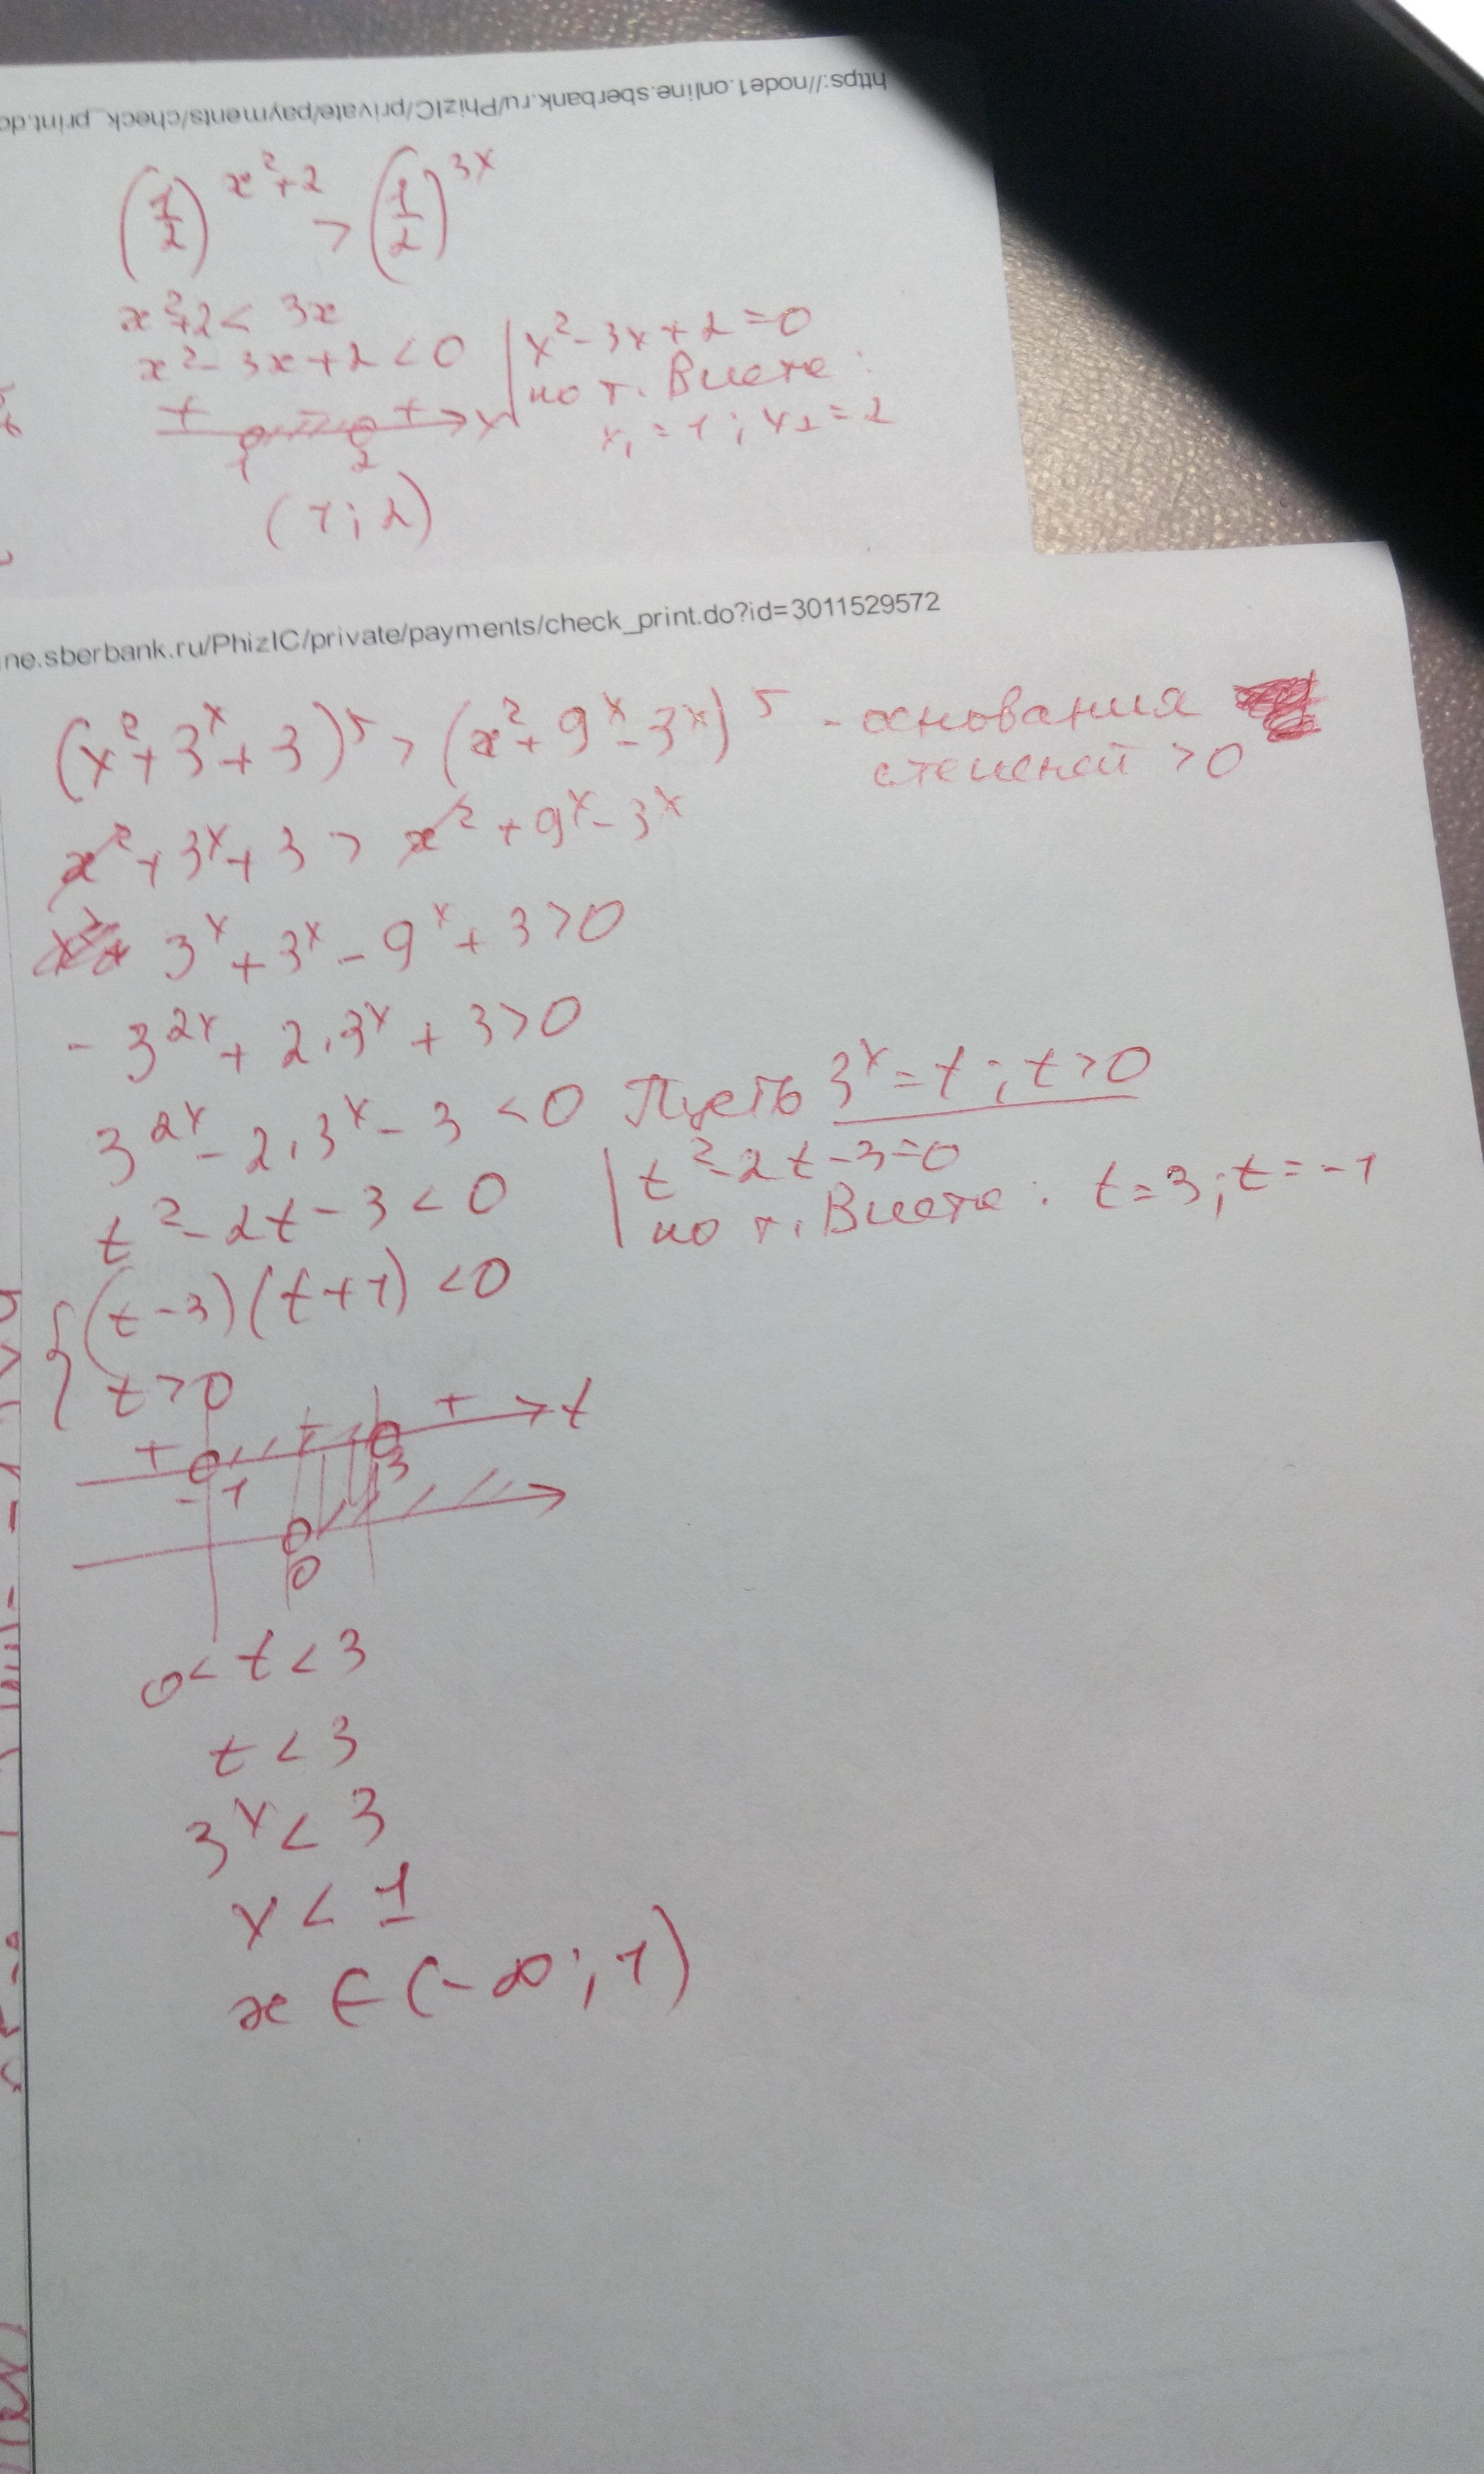 https://node1.online.sberbank.ru/PhizIC/private/payments/check_print.do
(1/2)^(x²+2) > (1/2)^(3x)
x²+2 < 3x
x² - 3x + 2 < 0 | x² - 3x + 2 = 0
по т. Виета:
x₁ = 1; x₂ = 2
+ + x
1 2
(1; 2)
ne.sberbank.ru/PhizIC/private/payments/check_print.do?id=3011529572
(x² + 3^x + 3)^5 > (x² + 9^x - 3^x)^5 - основания
степеней > 0
x² + 3^x + 3 > x² + 9^x - 3^x
3^x + 3^x - 9^x + 3 > 0
- 3^(2x) + 2·3^x + 3 > 0
3^(2x) - 2·3^x - 3 < 0 Пусть 3^x = t; t > 0
t² - 2t - 3 < 0 | t² - 2t - 3 = 0
по т. Виета: t = 3; t = -1
{ (t - 3)(t + 1) < 0
t > 0
+ - + t
-1 3
0
0 < t < 3
t < 3
3^x < 3
x < 1
x ∈ (-∞; 1)